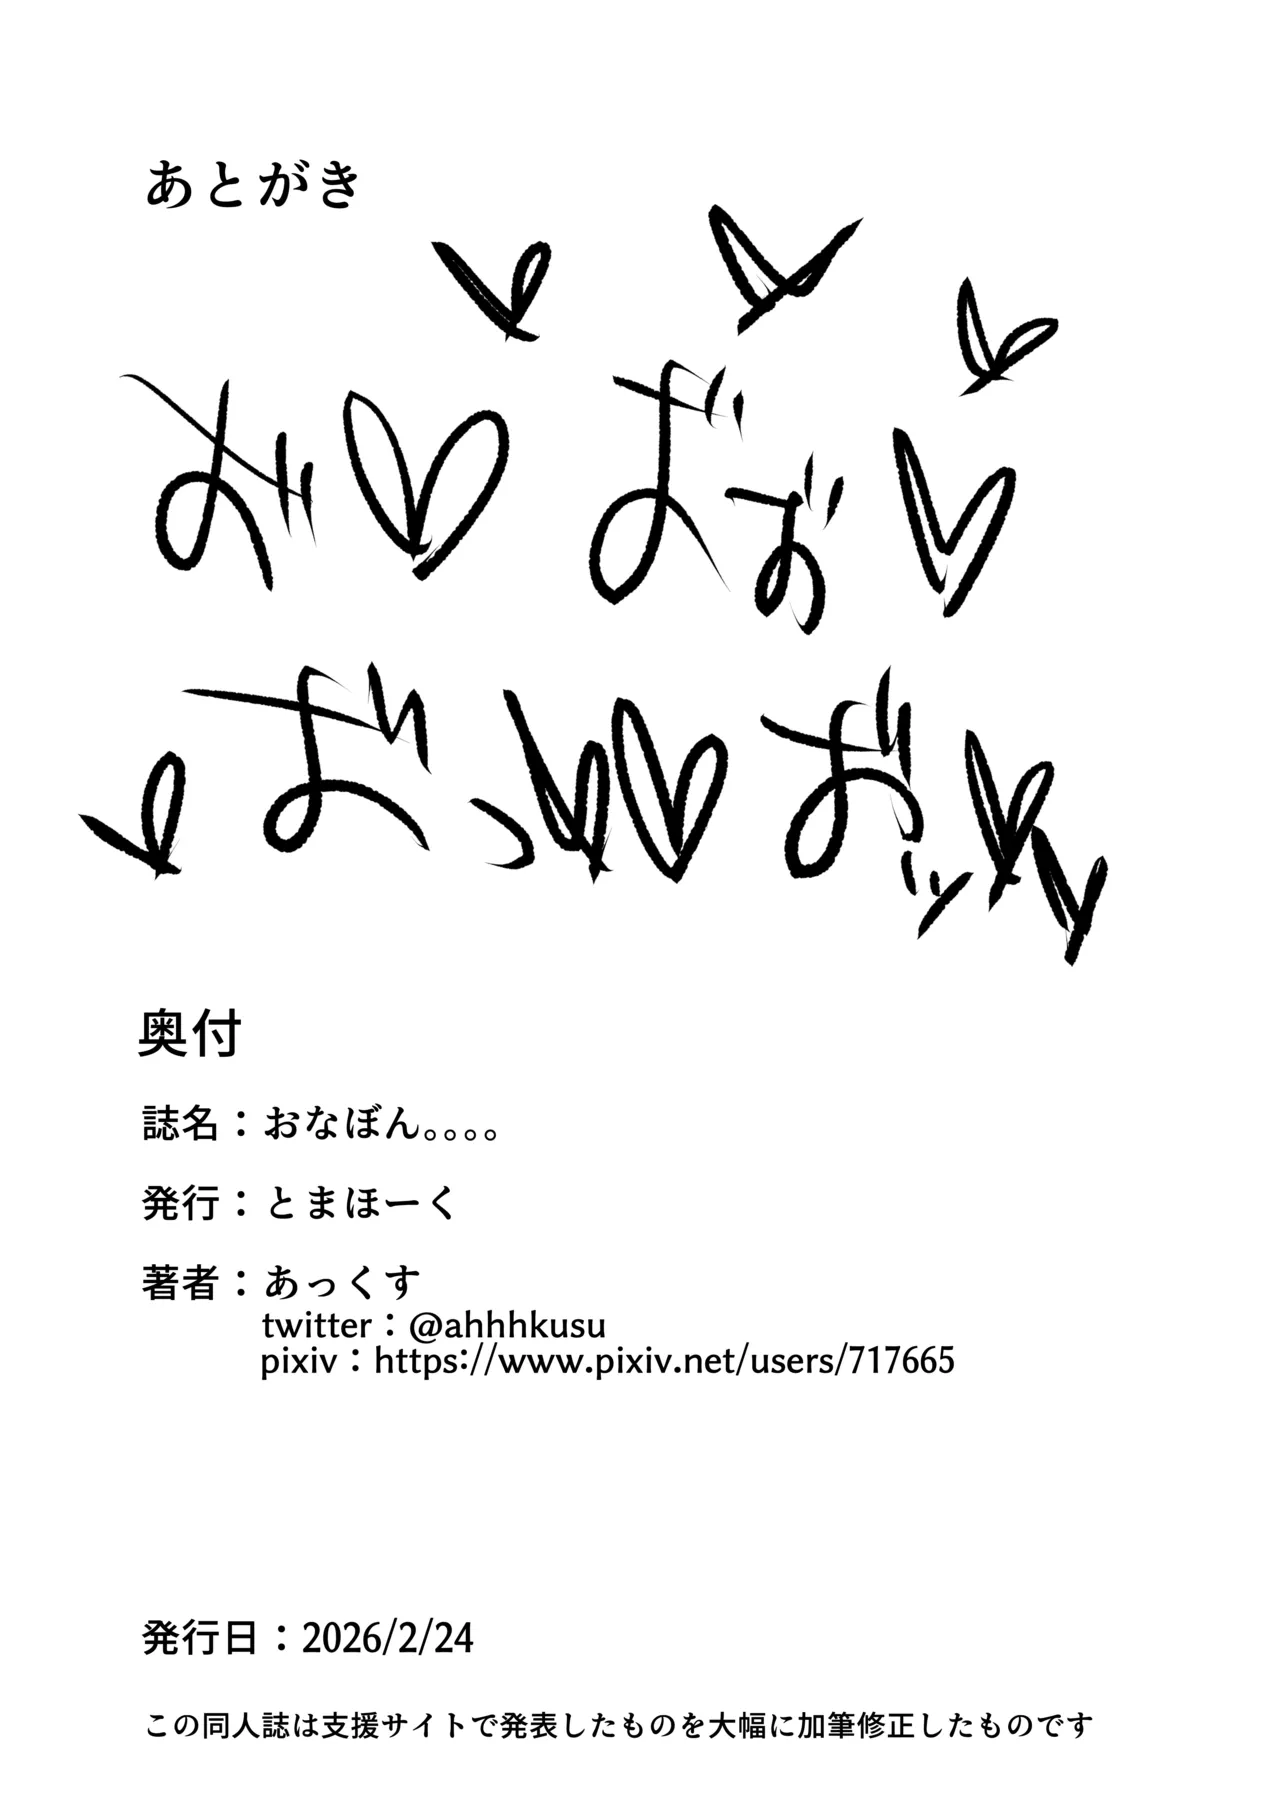 あとがき
お゛♡お゛ぉ゛♡
お゛っ♡♡お゛ッ♡
奥付
誌名：おなぼん。。。。
発行：とまほーく
著者：あっくす
twitter：@ahhhkusu
pixiv：https://www.pixiv.net/users/717665
発行日：2026/2/24
この同人誌は支援サイトで発表したものを大幅に加筆修正したものです